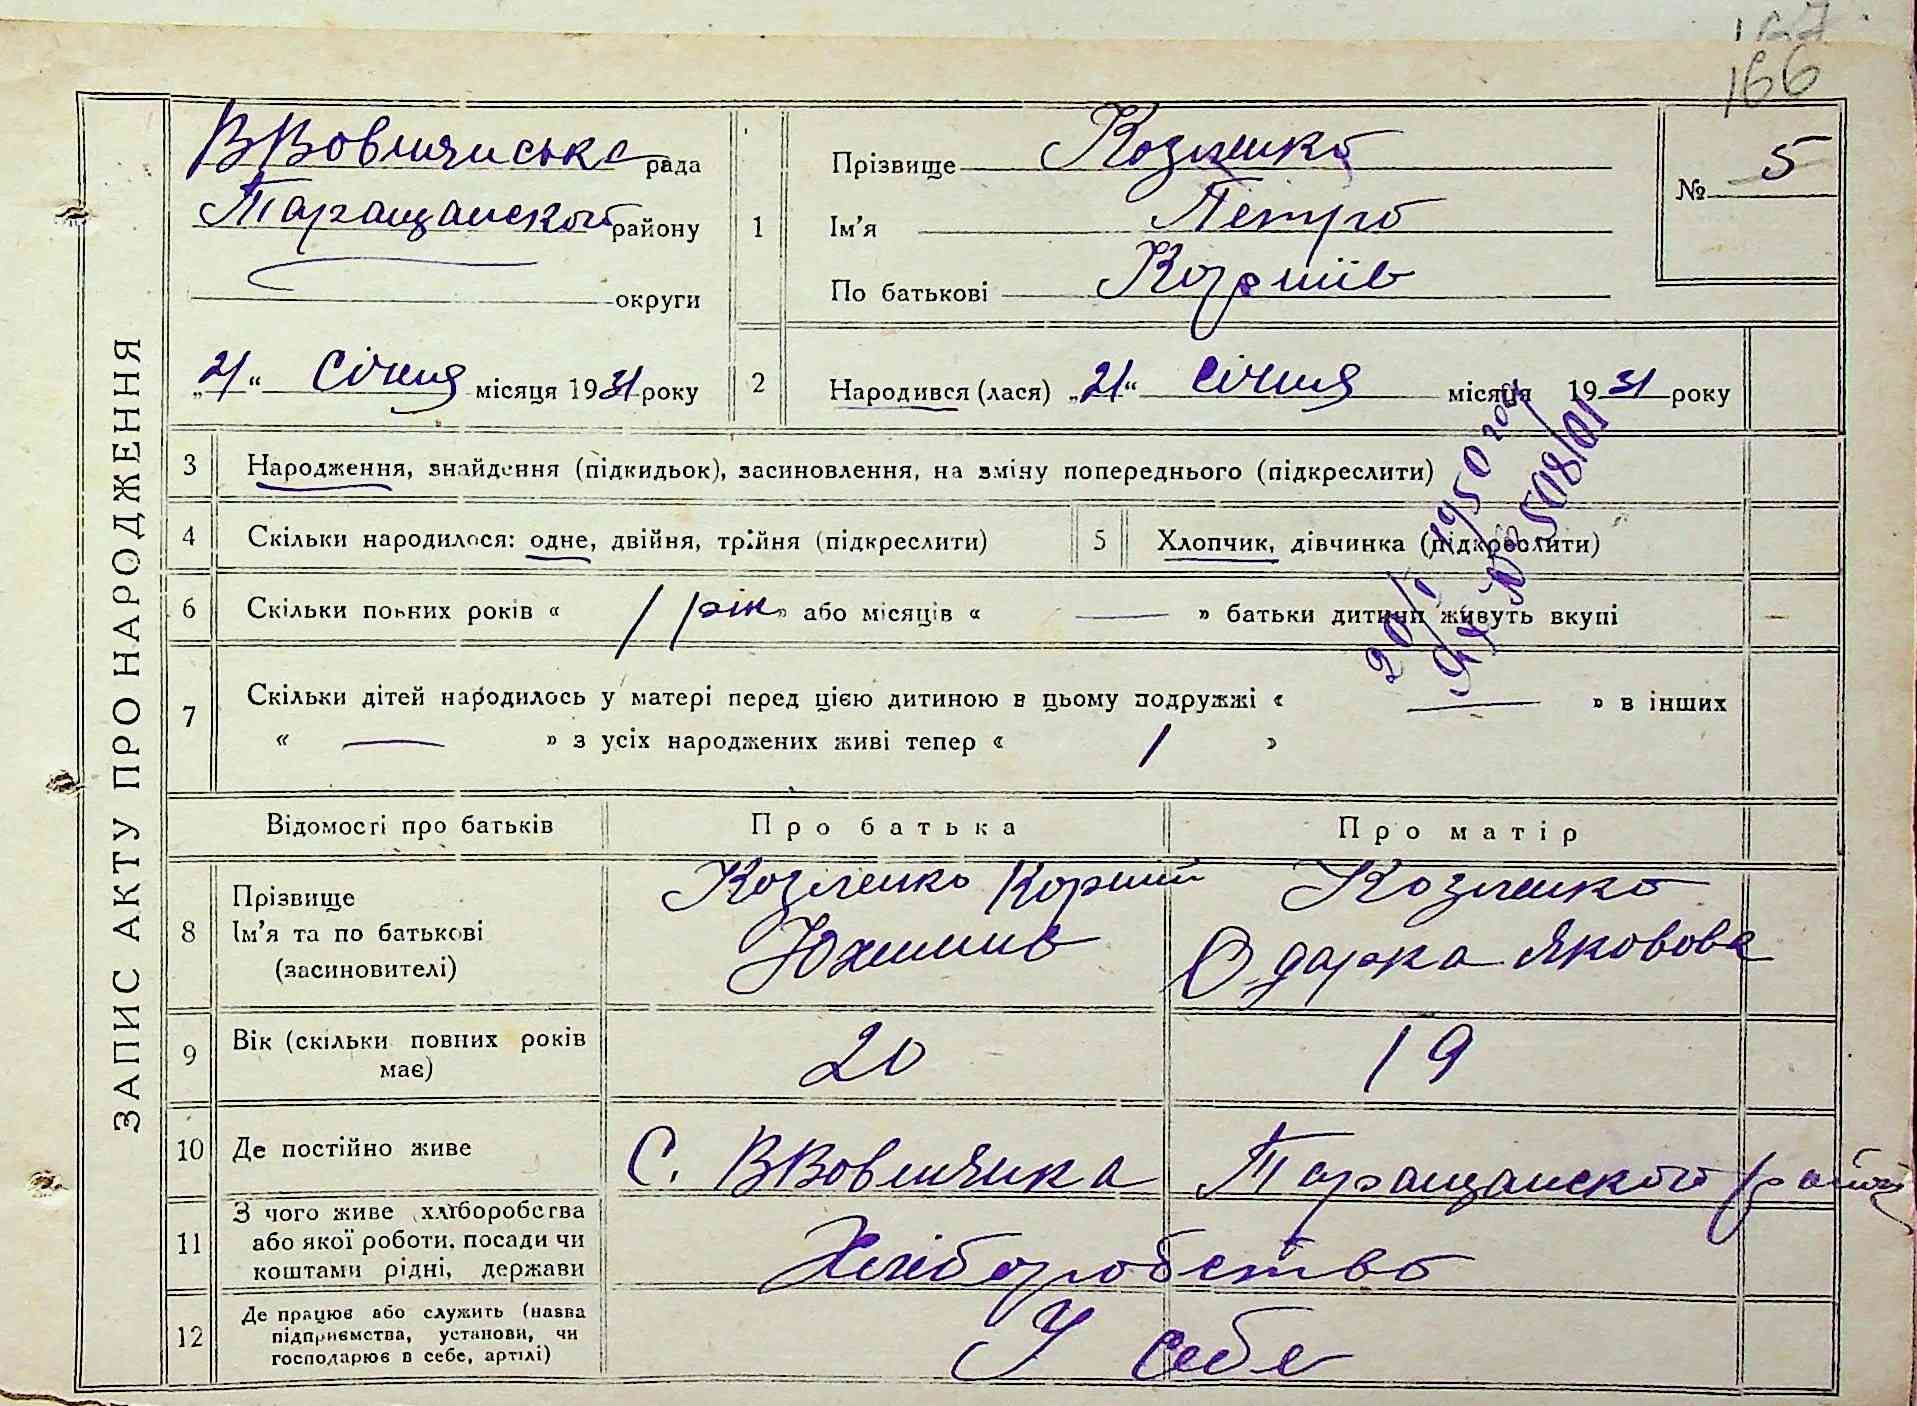 166
ЗАПИС АКТУ ПРО НАРОДЖЕННЯ
ВВовнянська рада
Таращанского району
округи
„21“ Січня місяця 1931 року
1
Прізвище Козленко
Ім'я Петро
По батькові Корніїв
№ 5
2 Народився (лася) „21“ Січня місяця 1931 року
3 Народження, знайдення (підкидьок), засиновлення, на зміну попереднього (підкреслити)
4 Скільки народилося: одне, двійня, трійня (підкреслити)
5 Хлопчик, дівчинка (підкреслити)
6 Скільки повних років « 1 рік » або місяців « — » батьки дитини живуть вкупі
7 Скільки дітей народилось у матері перед цією дитиною в цьому подружжі « — » в інших
« — » з усіх народжених живі тепер « 1 »
Відомості про батьків Про батька Про матір
8 Прізвище
Ім'я та по батькові
(засиновителі)
Козленко Корній
Юхимів
Козленко
Одарка Яковова
9 Вік (скільки повних років
має)
20 19
10 Де постійно живе С. ВВовнянка Таращанского району
11 З чого живе хліборобства
або якої роботи, посади чи
коштами рідні, держави
Хліборобство
12 Де працює або служить (назва
підприємства, установи, чи
господарює в себе, артілі)
У себе